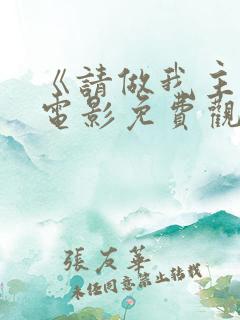 《請做我主
電影免費觀
張友華
未經同意禁止轉載